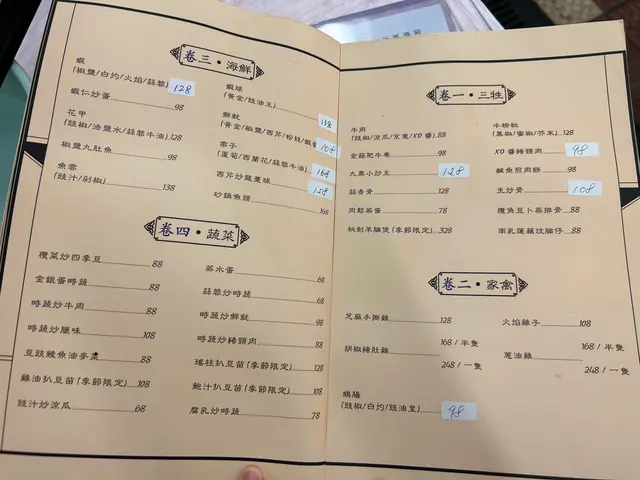 卷三·海鮮
蝦
(椒鹽/白灼/火焰/蒜蓉) 128
蝦仁炒蛋 98
花甲
(豉椒/油鹽水/蒜蓉牛油) 128
椒鹽九肚魚 98
魚雲
(豉汁/剁椒) 138
蝦球
(黃金/豉油王) 138
鮮魷
(黃金/椒鹽/西芹/粉絲/蝦醬 108
帶子
(蘆筍/西蘭花/蒜蓉牛油) 168
西芹炒龍躉球 158
砂鍋魚頭 168
卷四·蔬菜
欖菜炒四季豆 88
金銀蛋時蔬 88
時蔬炒牛肉 88
時蔬炒臘味 108
豆豉鯪魚油麥菜 88
雞油扒豆苗(季節限定) 108
豉汁炒涼瓜 68
蒸水蛋 68
蒜蓉炒時蔬 68
時蔬炒鮮魷 98
時蔬炒豬頸肉 88
瑤柱扒豆苗(季節限定) 128
鮑汁扒豆苗(季節限定) 108
腐乳炒時蔬 78
卷一·三牲
牛肉
(豉椒/涼瓜/京蔥/XO醬) 88
金菇肥牛卷 98
九素小炒王 128
蒜香骨 128
肉鬆蒸蛋 78
枝竹羊腩煲(季節限定) 328
牛柳粒
(黑椒/蜜椒/芥末) 128
XO醬豬頸肉 98
鹹魚煎肉餅 98
生炒骨 108
欖角豆卜蒸排骨 88
南乳蓮藕炆腩仔 88
卷二·家禽
芝麻手撕雞 128
胡椒豬肚雞 168/半隻
248/一隻
鵝腸
(豉椒/白灼/豉油皇) 98
火焰雞子 108
蔥油雞 168/半隻
248/一隻